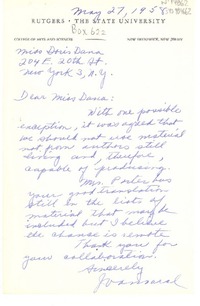 May 27, 1958
RUTGERS · THE STATE UNIVERSITY
COLLEGE OF ARTS AND SCIENCES NEW BRUNSWICK, NEW JERSEY
Box 622
Miss Doris Dana
204 E. 20th St.
New York 3, N.Y.
Dear Miss Dana:
With one possible
exception, it was agreed that
we should not use material
not from authors still
living and, therefore,
capable of producing.
Mr. Porter has
your good translation
still in the lists of
material that may be
included but I believe
the chance is remote
Thank you for
your collaboration.
Sincerely